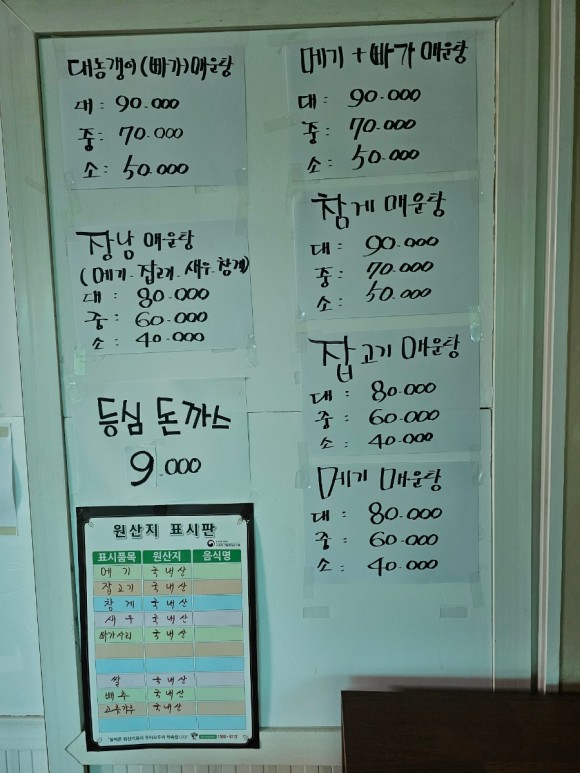 대농갱이(빠가)매운탕
대: 90.000
중: 70.000
소: 50.000
장남 매운탕
(메기-잡고기-새우-참게)
대: 80.000
중: 60.000
소: 40.000
등심 돈까스
9.000
메기+빠가 매운탕
대: 90.000
중: 70.000
소: 50.000
참게 매운탕
대: 90.000
중: 70.000
소: 50.000
잡고기 매운탕
대: 80.000
중: 60.000
소: 40.000
메기 매운탕
대: 80.000
중: 60.000
소: 40.000
원산지 표시판
표시품목 원산지 음식명
메기 국내산
잡고기 국내산
참게 국내산
새우 국내산
빠가사리 국내산
쌀 국내산
배추 국내산
고추가루 국내산